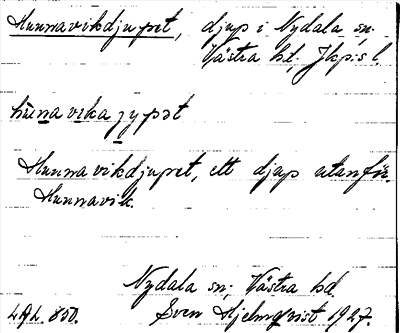 Hunnavikdjupet, djup i Nydala sn,
Västra hd, Jkp:s l.
hunavika jypət
Hunnavikdjupet, ett djup utanför
Hunnavik.
Nydala sn, Västra hd.
Sven Hjelmqvist 1927.